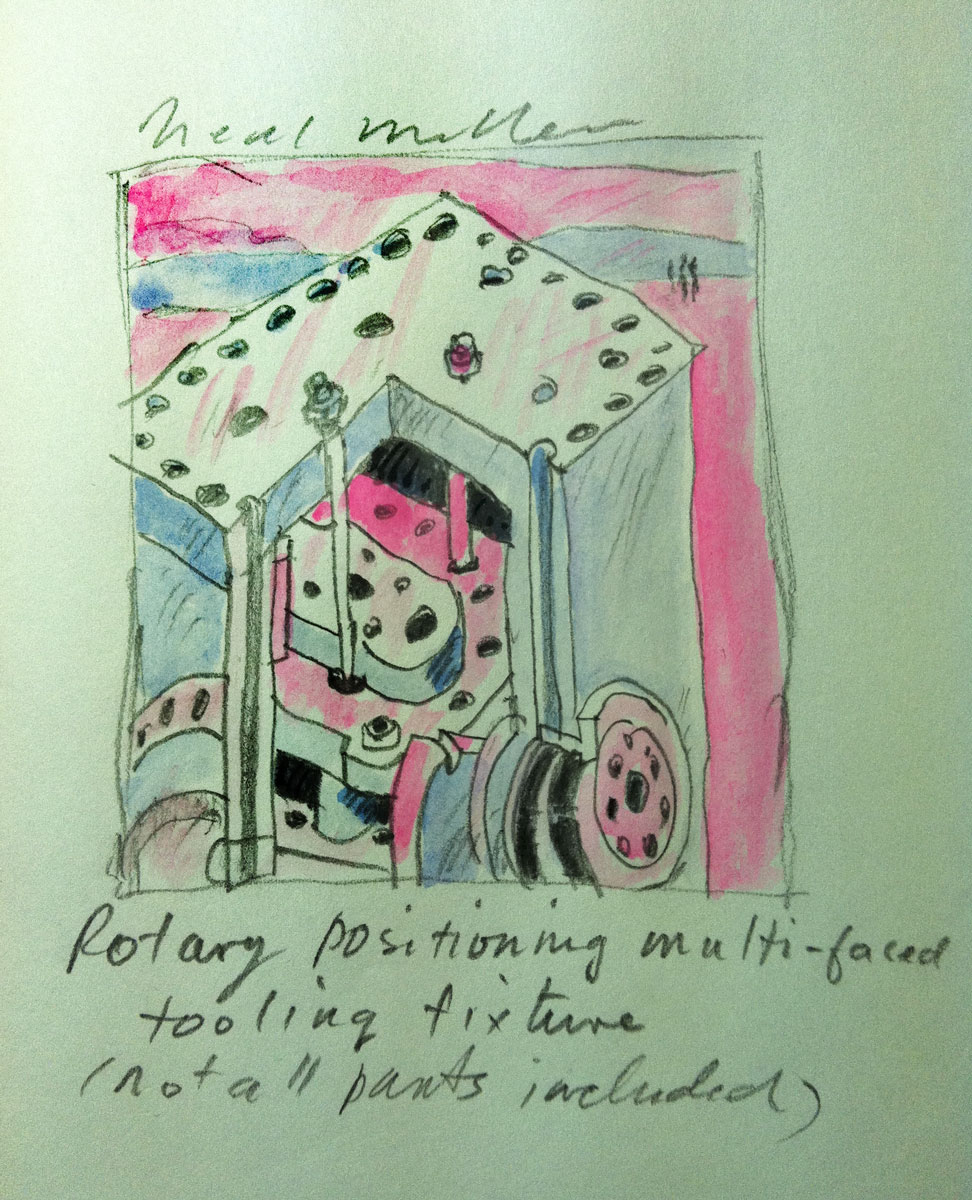 Neal
Rotary positioning multi-faced
tooling fixture
(not all parts included)